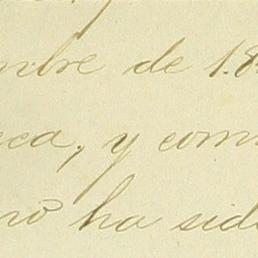 mbre de 18
eca, y com
no ha sid